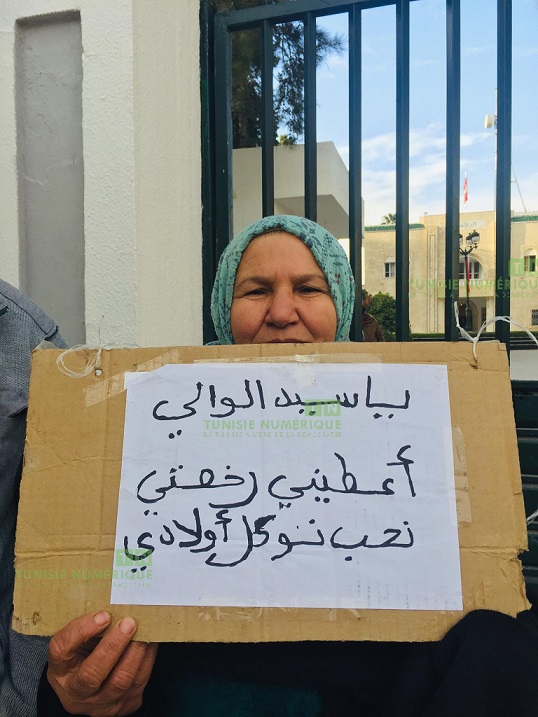 يا سيد الوالي
أعطيني رخصتي
نحب نوكل أولادي
TN
TUNISIE NUMÉRIQUE
TN
TUNISIE NUMÉRIQUE
TN
TUNISIE NUMÉRIQUE